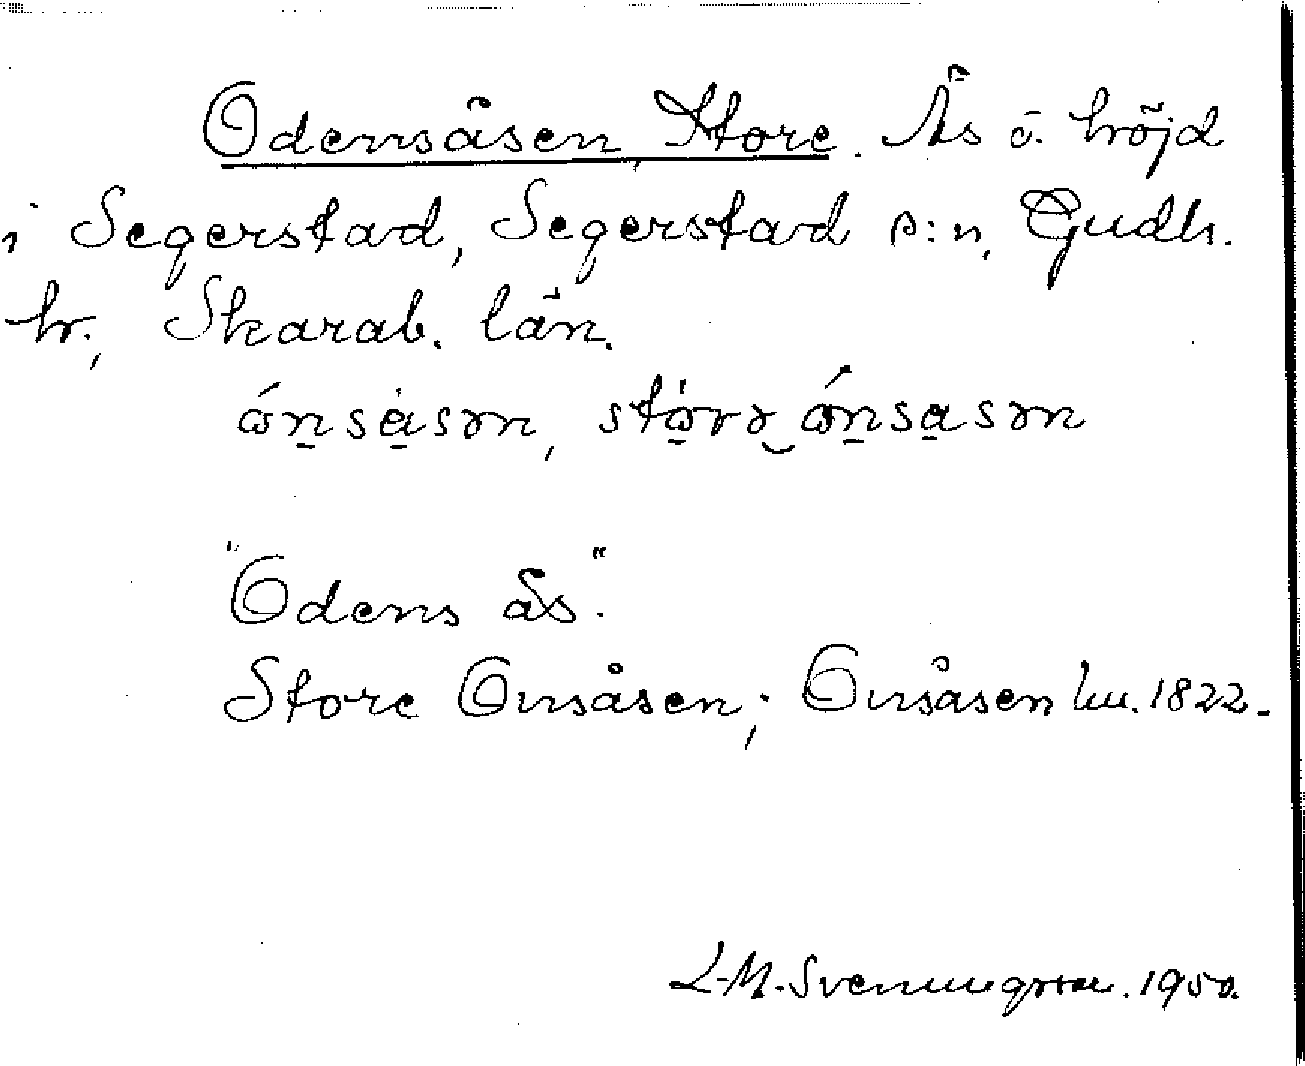 Odensåsen, Store. Ås o. höjd
i Segerstad, Segerstad s:n, Gudh.
hr., Skarab. län.
ɷ́n̠sȧ̠sən, stɷ̠̇rə‿ɷ́n̠sa̠sən
"Odens ås".
Store Onsåsen; Onsåsen hu. 1822.
L-M. Svenungsson. 1950.